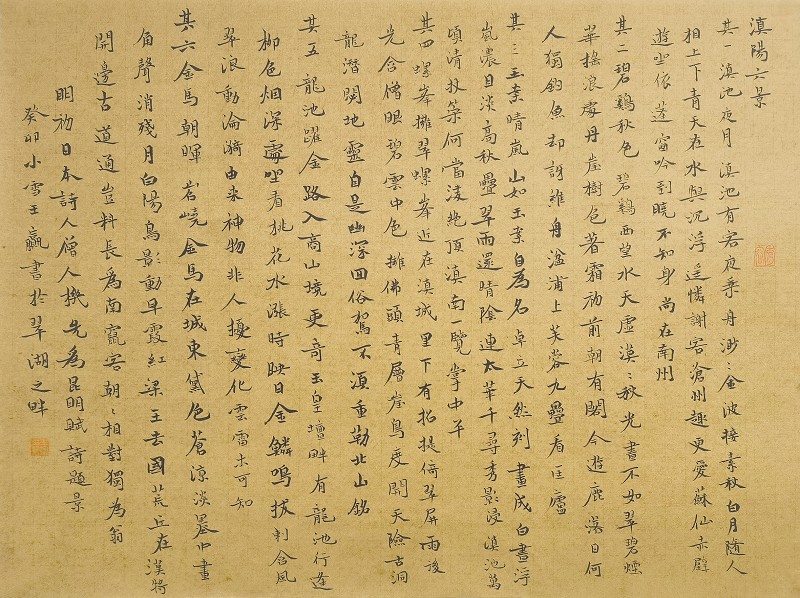 滇陽六景
其一滇池夜月 滇池有客夜乘舟渺〻金波接素秋白月隨人
相上下青天在水與沉浮遥憐謝客滄州趣更愛蘇仙赤壁
遊坐依蓬窗吟到曉不知身尚在南州
其二碧鷄秋色 碧鷄西望水天虛漠〻秋光畫不如翠碧煙
華搖浪處丹崖樹色著霜初前朝有閣今遊鹿 日何
人獨釣魚却訝維舟湓浦上芙蓉九疊看匡廬
其三玉案晴嵐山如玉案自為名卓立天然列畫成白晝浮
嵐濃且淡高秋疊翠雨還晴陰連太華千尋秀影浸滇池萬
頃清扶筇何當凌絶頂滇南一覽掌中平
其四螺峯擁翠螺峯近在滇城里下有招提倚翠屏雨後
光含僧眼碧雲中色擁佛頭青層崖鳥度開天險古洞
龍潛閟地靈自是幽深回俗駕不須重勒北山銘
其五龍池躍金路入商山境更奇玉皇壇畔有龍池行逢
柳色烟深處坐看桃花水漲時映日金鱗鳴拔剌含風
翠浪動淪漪由来神物非人擾變化雲雷未可知
其六金馬朝暉岧嶢金馬在城東黛色蒼涼淡墨中畫
角聲消殘月白陽鳥影動早霞紅梁王去國荒丘在漢將
開邊古道通豈料長為南竄客朝〻相對獨為翁
明初日本詩人僧人機先為昆明賦詩題景
癸卯小雪王贏書於翠湖之畔